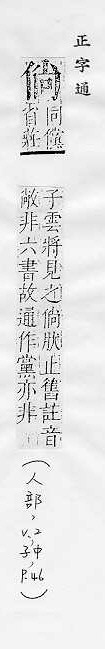 正字通
倘
同儻
省莊
子雲將見之倘狀止舊註音
敞非六書故通作黨亦非
(人部, v.2, 子中, P.46)